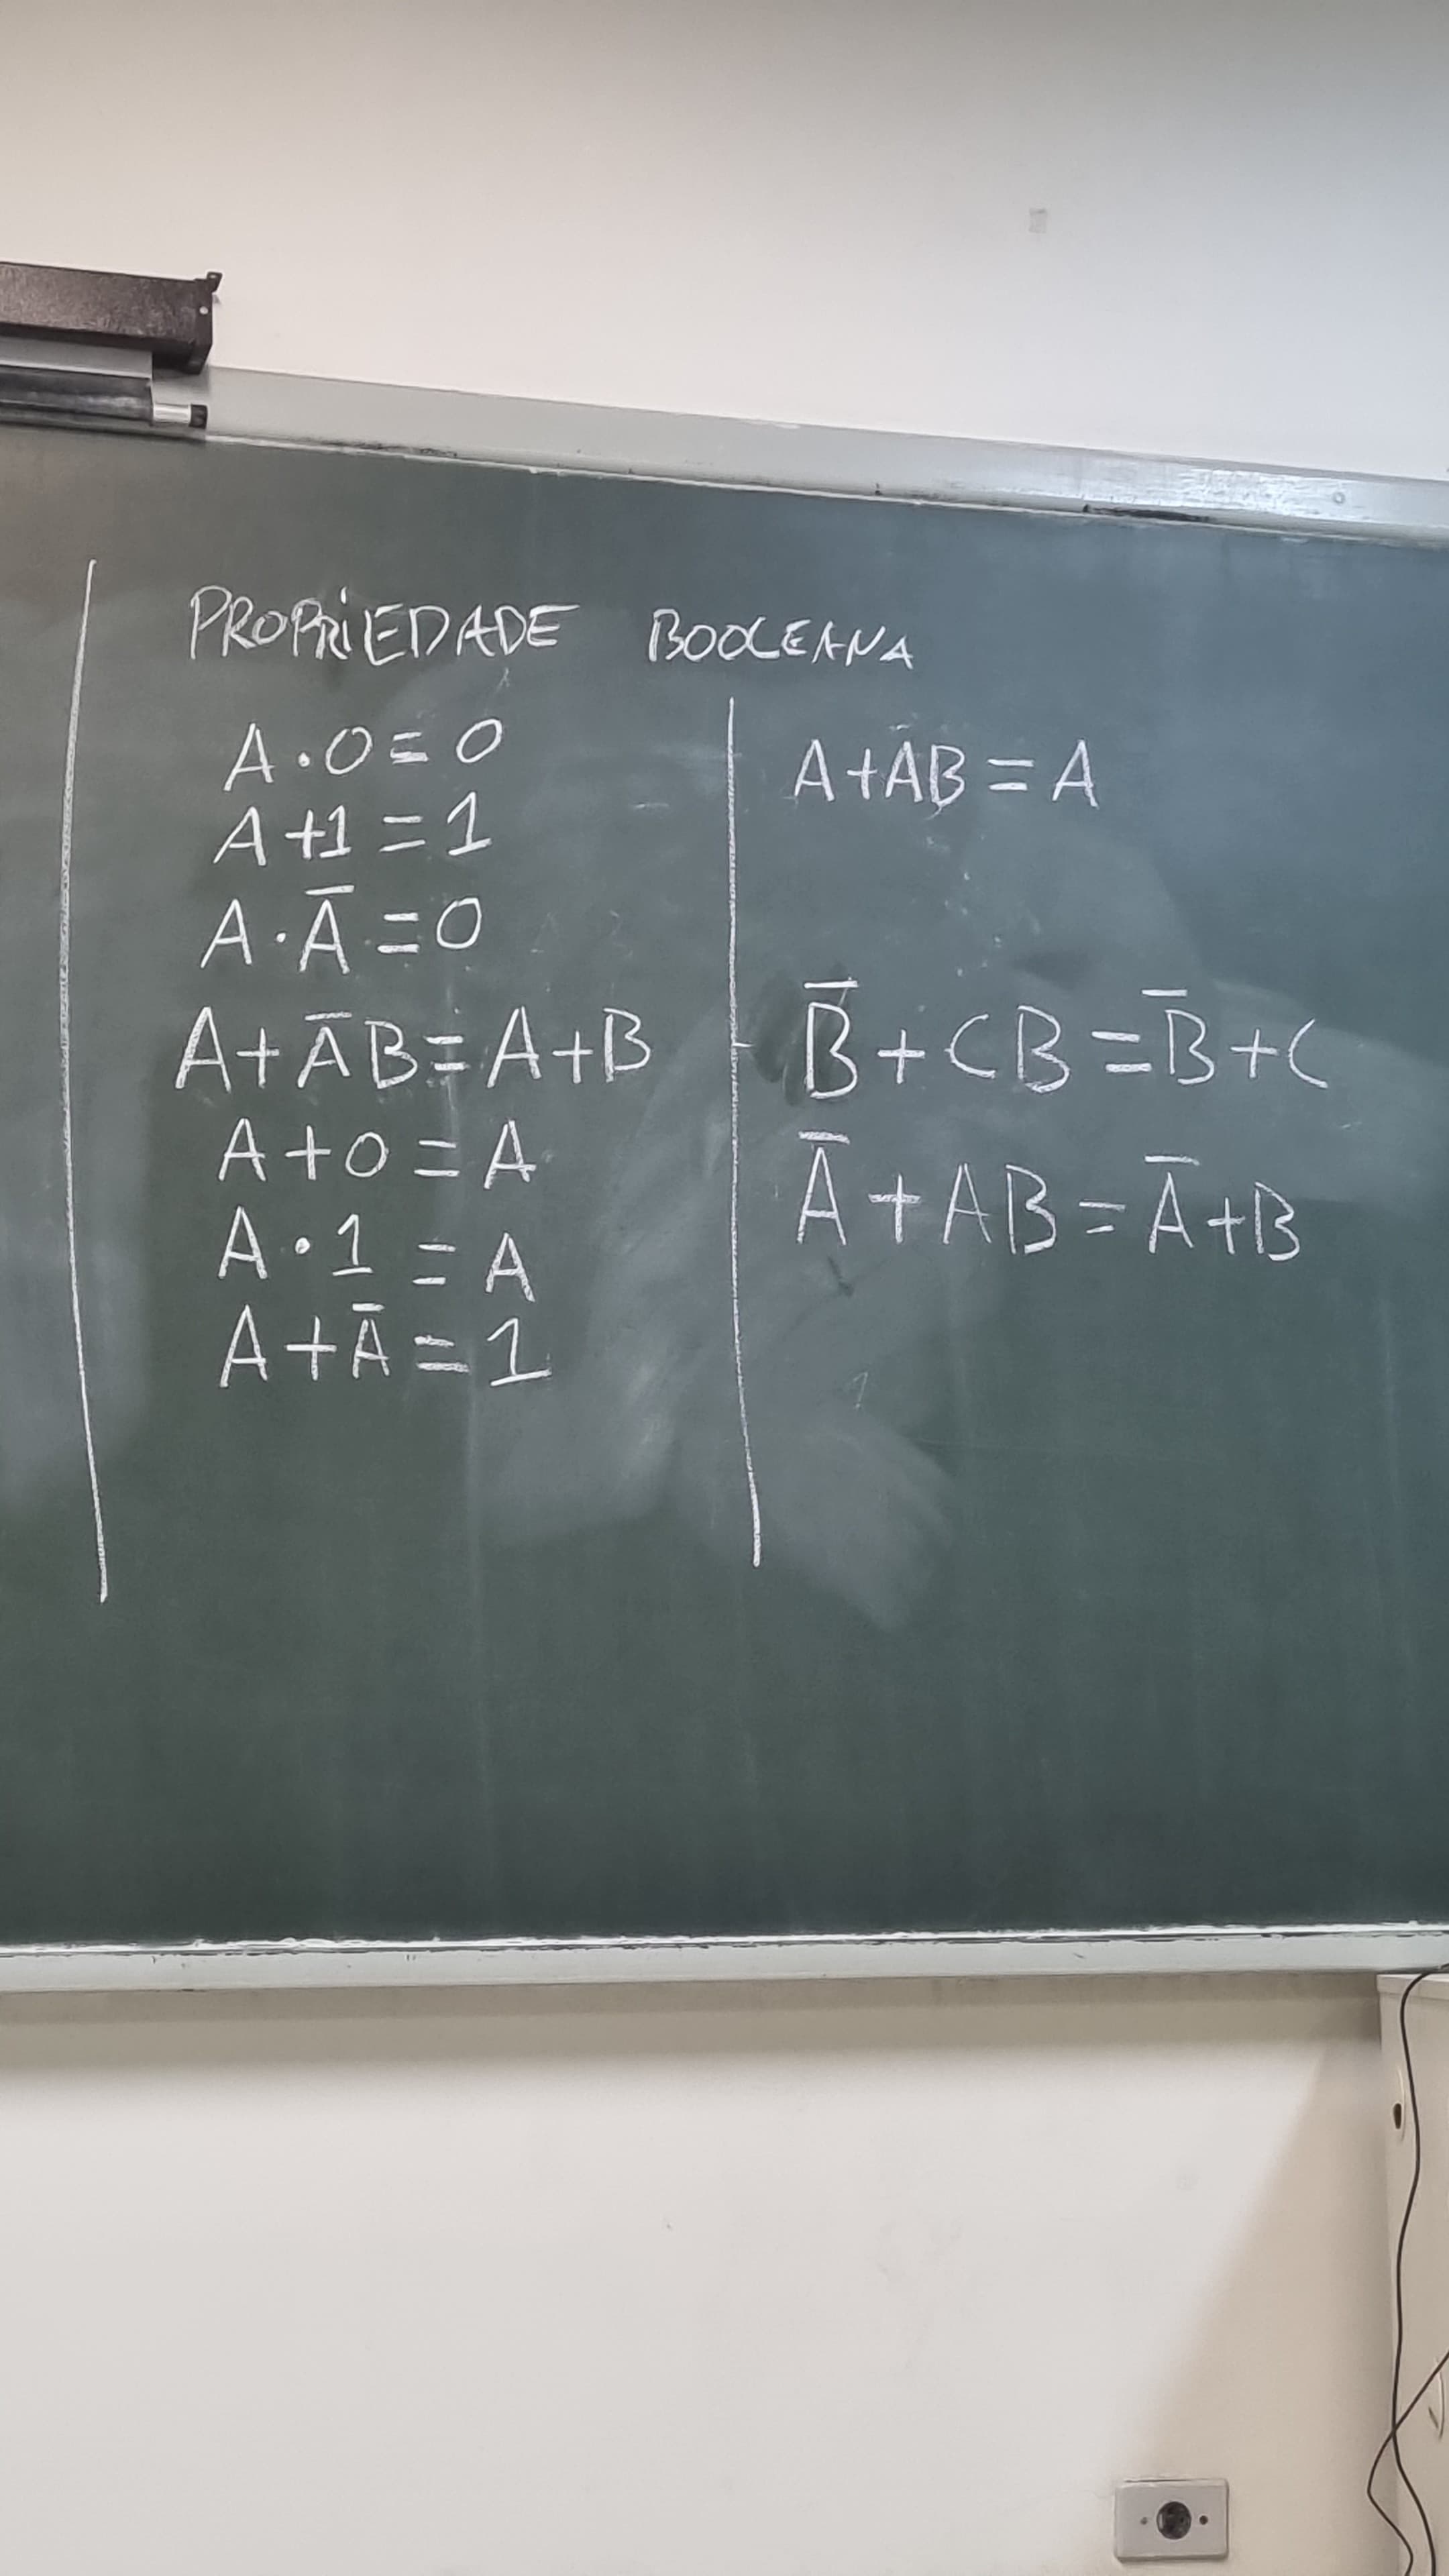 PROPRIEDADE BOOLEANA
A·0=0
A+1=1
A·Ā=0
A+ĀB=A+B
A+0=A
A·1=A
A+Ā=1
A+AB=A
B̄+CB=B̄+C
Ā+AB=Ā+B